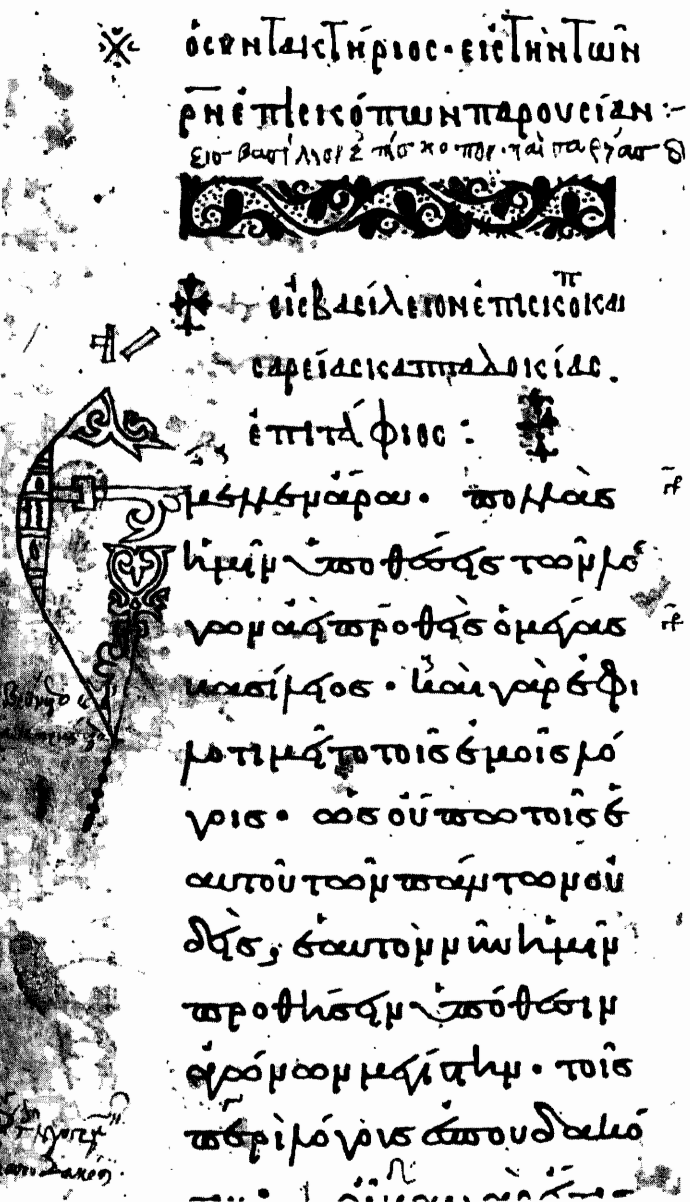 ὁ συντακτήριος· εἰς τὴν τῶν
ρν ἐπισκόπων παρουσίαν :-
εἰς βασίλειον
εἰς βασίλειον ἐπισκο^π και
σαρείας καππαδοκίας.
ἐπιτάφιος :
Ἔμελλεν ἄρα· πολλὰς
ἡμῖν ὑποθέσεις τῶν λό
γων ἀεὶ προθεὶς ὁ μέγας
βασίλειος· καὶ γὰρ ἐφι
λοτιμεῖτο τοῖς ἐμοῖς λό
γοις· ὡς οὔπω τοῖς ἑ
αυτοῦ τῶν πάντων οὐ
δείς, ἑαυτὸν νῦν ἡμῖν
προθήσειν ὑπόθεσιν
ἀγώνων μεγίστην· τοῖς
περὶ λόγους ἐσπουδακό